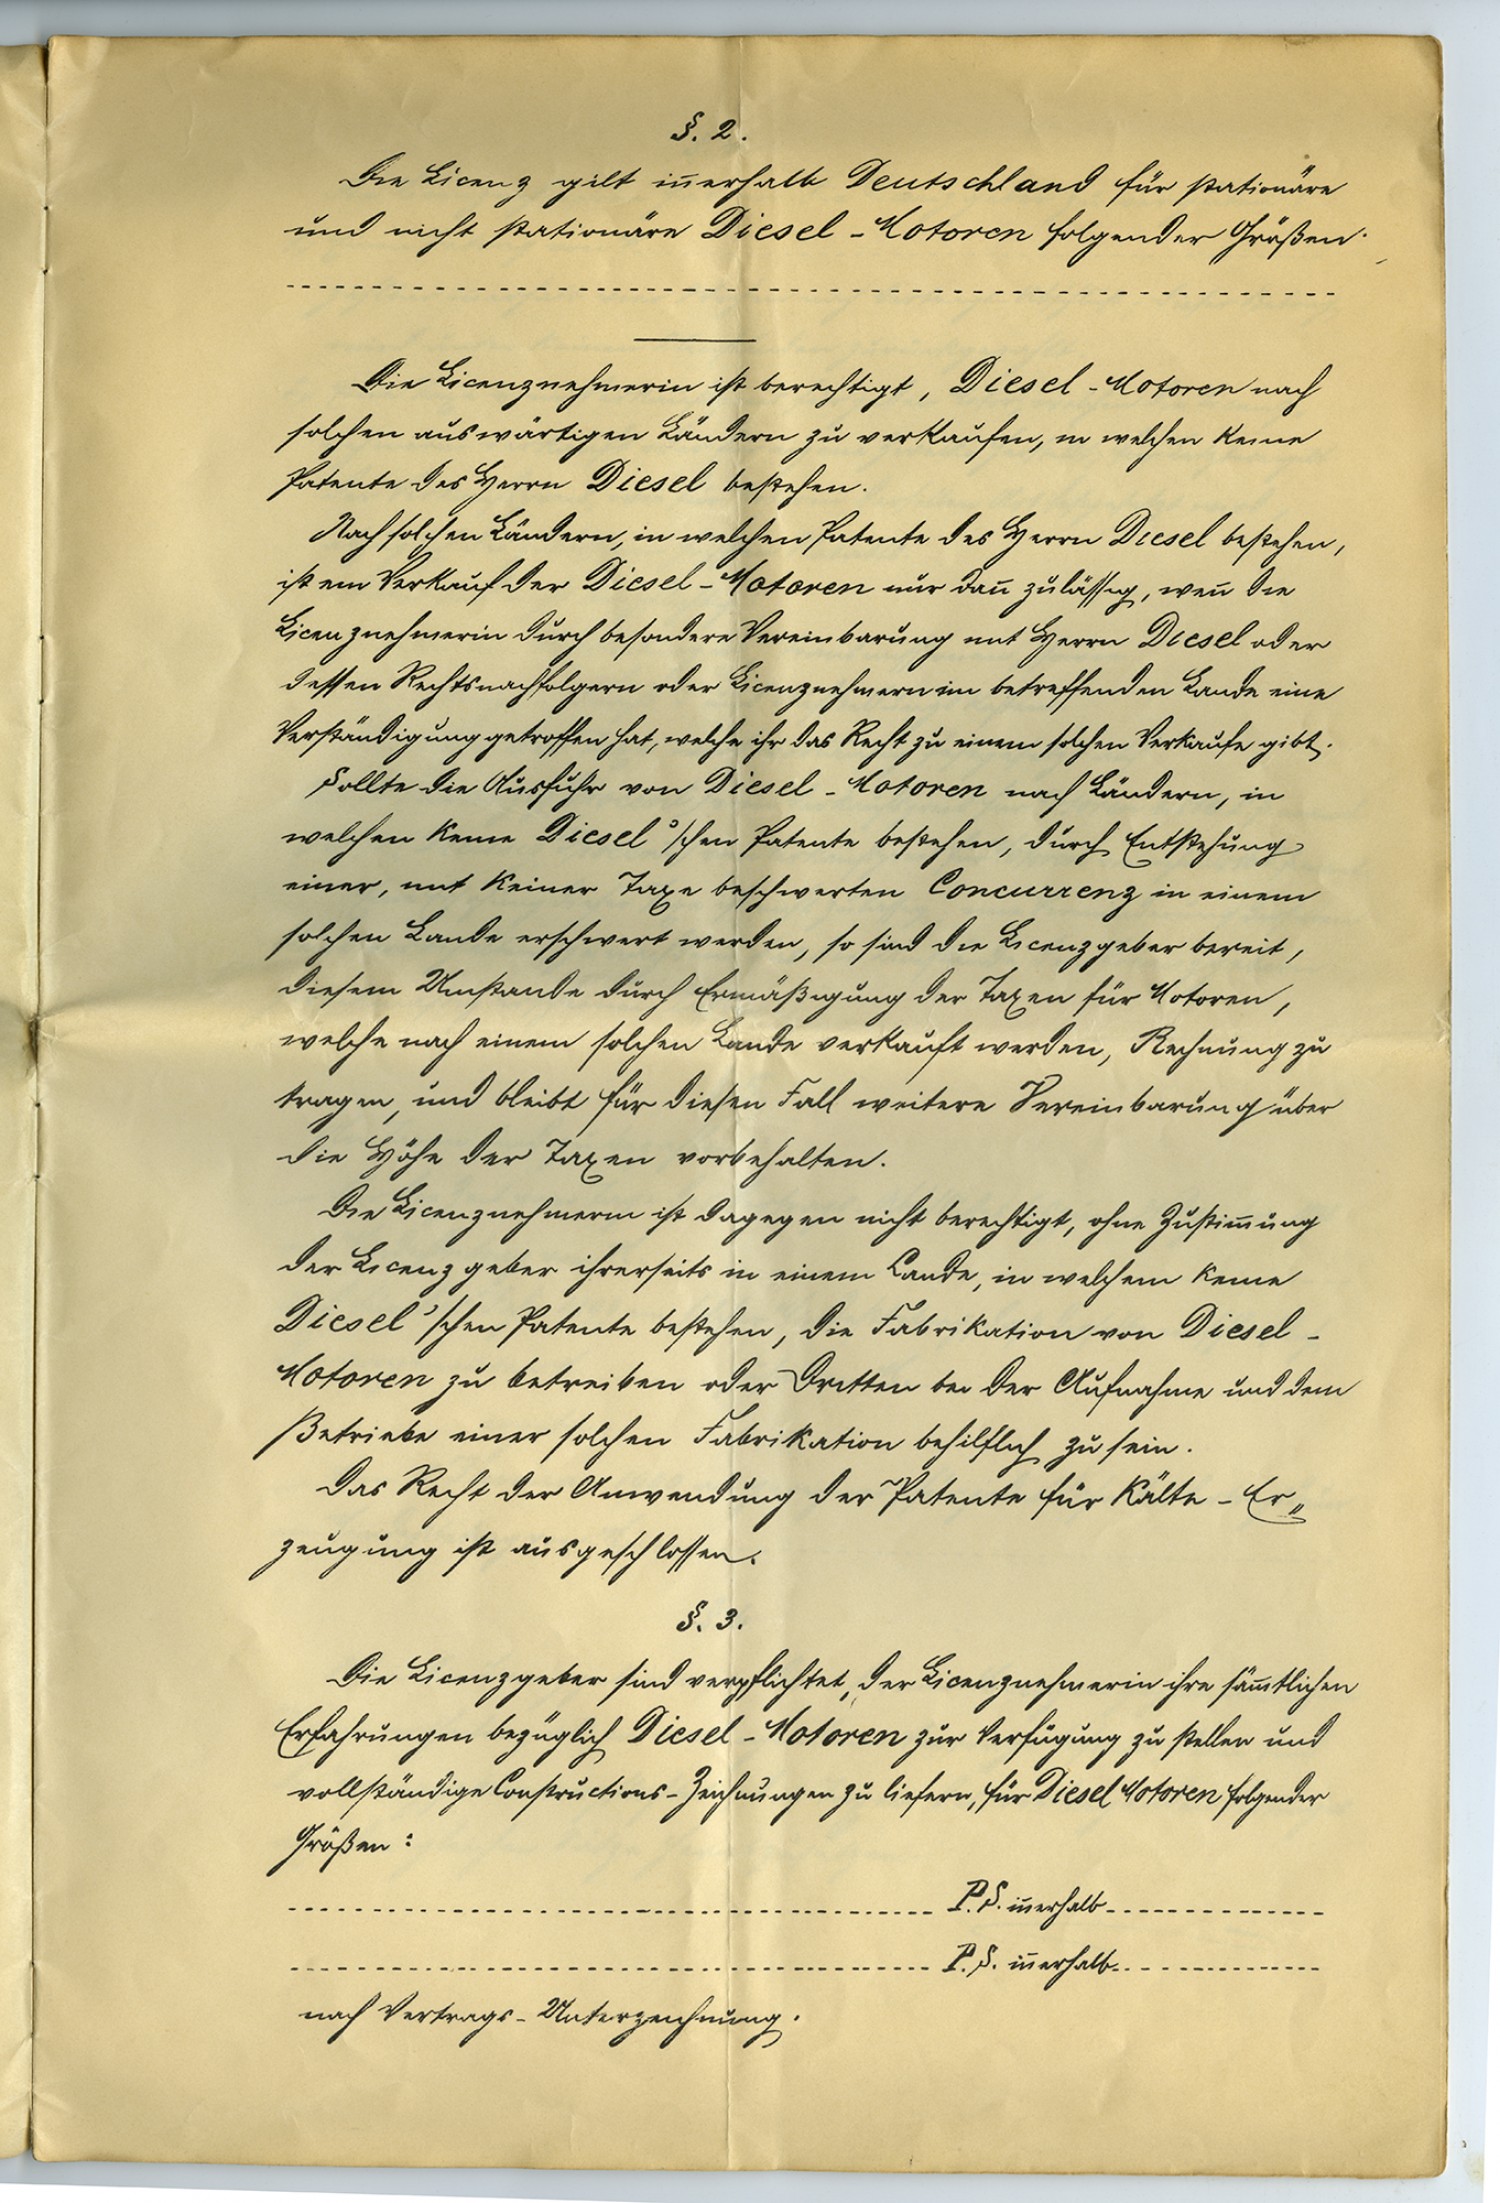 §. 2.
Die Licenz gilt iñerhalb Deutschland für stationäre
und nicht stationäre Diesel-Motoren folgender Größen.
Die Licenznehmerin ist berechtigt, Diesel-Motoren nach
solchen auswärtigen Ländern zu verkaufen, in welchen keine
Patente des Herrn Diesel bestehen.
Nach solchen Ländern, in welchen Patente des Herrn Diesel bestehen,
ist ein Verkauf der Diesel-Motoren nur dañ zulässig, weñ die
Licenznehmerin durch besondere Vereinbarung mit Herrn Diesel oder
dessen Rechtsnachfolgern oder Licenznehmern im betreffenden Lande eine
Verständigung getroffen hat, welche ihr das Recht zu einem solchen Verkaufe gibt.
Sollte die Ausfuhr von Diesel-Motoren nach Ländern, in
welchen keine Diesel'schen Patente bestehen, durch Entstehung
einer, mit keiner Taxe beschwerten Concurrenz in einem
solchen Lande erschwert werden, so sind die Licenzgeber bereit,
diesem Umstande durch Ermäßigung der Taxen für Motoren,
welche nach einem solchen Lande verkauft werden, Rechnung zu
tragen, und bleibt für diesen Fall weitere Vereinbarung über
die Höhe der Taxen vorbehalten.
Die Licenznehmerin ist dagegen nicht berechtigt, ohne Zustim̃ung
der Licenzgeber ihrerseits in einem Lande, in welchem keine
Diesel'schen Patente bestehen, die Fabrikation von Diesel-
Motoren zu betreiben oder Dritten bei der Aufnahme und dem
Betriebe einer solchen Fabrikation behilflich zu sein.
Das Recht der Anwendung der Patente für Kälte-Er„
zeugung ist ausgeschlossen.
§. 3.
Die Licenzgeber sind verpflichtet, der Licenznehmerin ihre säm̃tlichen
Erfahrungen bezüglich Diesel-Motoren zur Verfügung zu stellen und
vollständige Constructions-Zeichnungen zu liefern, für Diesel Motoren folgender
Größen:
P.S. iñerhalb
P.S. iñerhalb
nach Vertrags-Unterzeichnung.